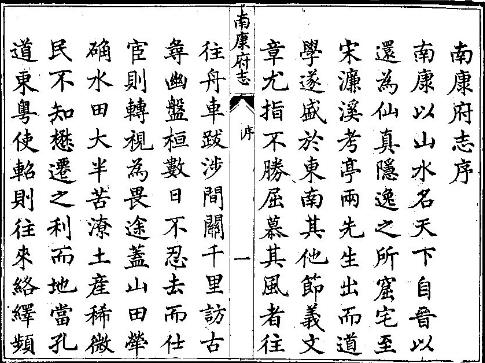 南康府志序
南康以山水名天下自晉以
還為仙真隱逸之所窟宅至
宋濂溪考亭兩先生出而道
學遂盛於東南其他節義文
章尤指不勝屈慕其風者往
南康府志
序
一
往舟車跋涉間關千里訪古
尋幽盤桓數日不忍去而仕
宦則轉視為畏途蓋山田犖
确水田大半苦潦土産稀微
民不知懋遷之利而地當孔
道東粵使軺則往來絡繹頻